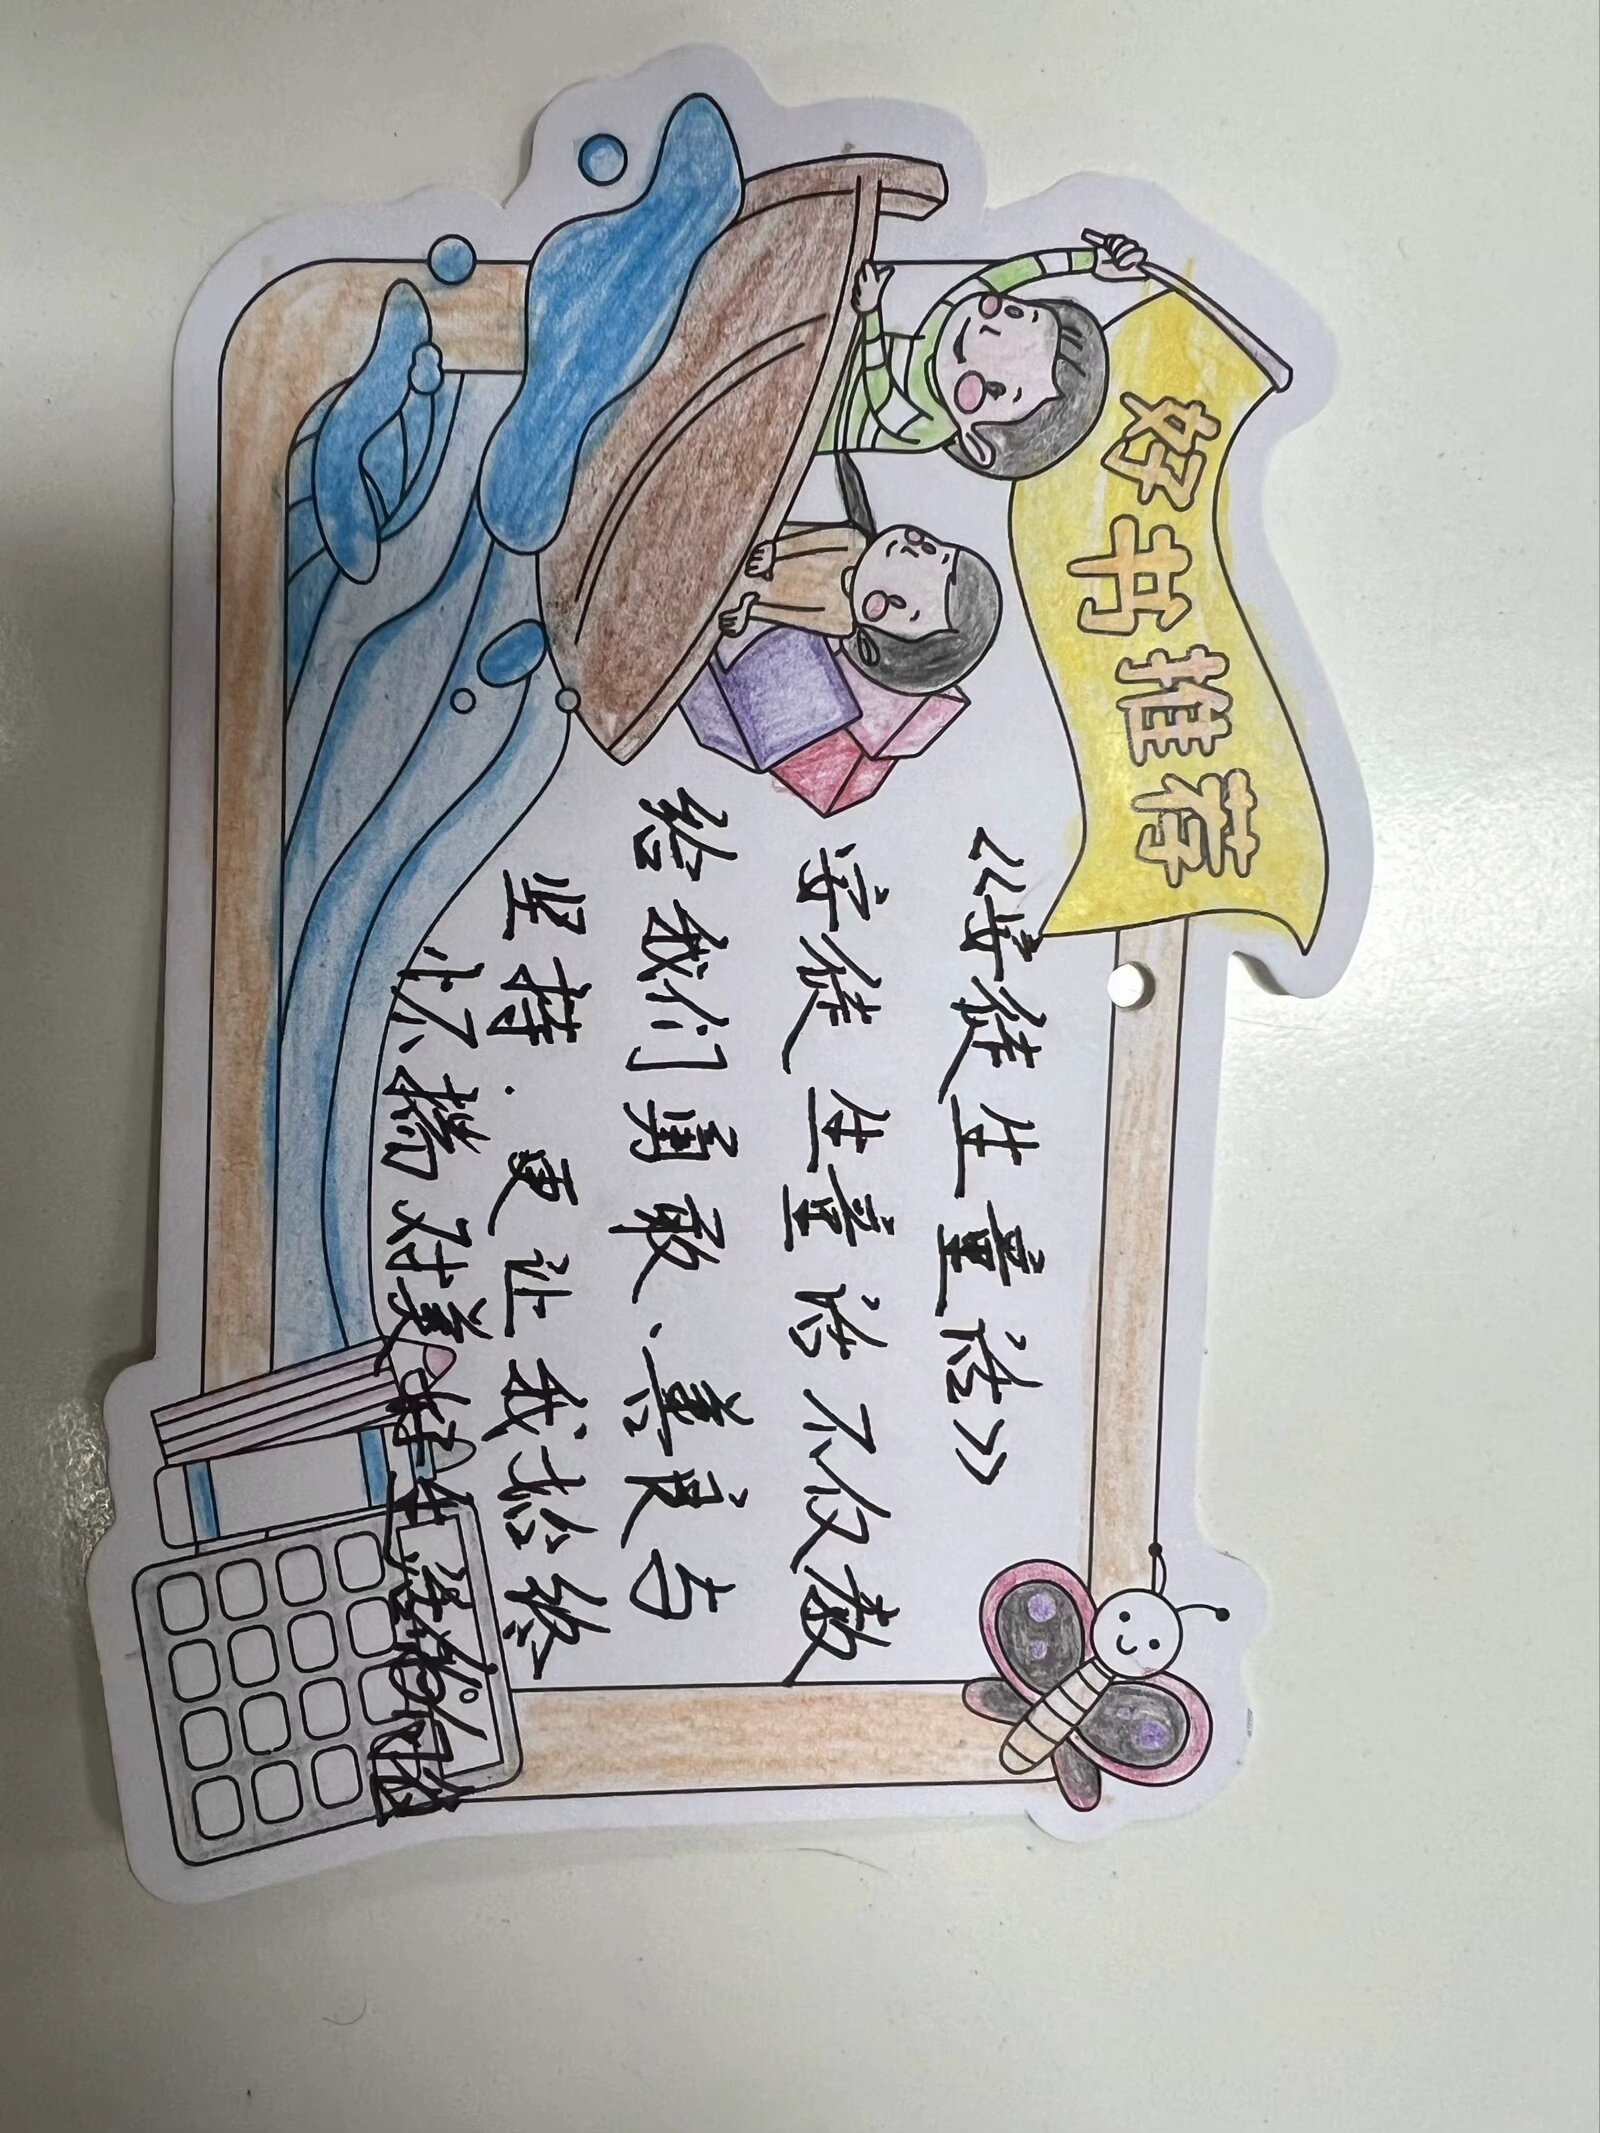 好书推荐
《安徒生童话》
安徒生童话不仅教
给我们勇敢、善良与
坚持.更让我始终
怀揣对美好生